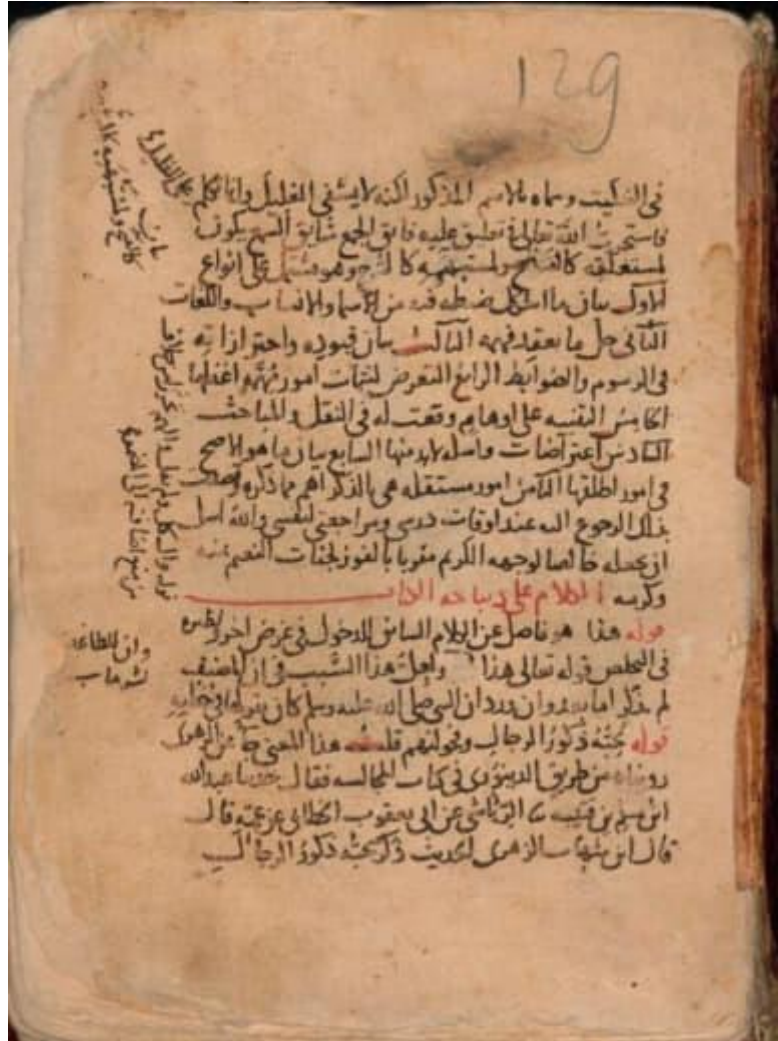 129
في التنكيت وسماه بالاسم المذكور لكنه لا يشفي الغليل وانما تكلم
فاستخرت الله تعالى في تعليق عليه فايق الجمع شايق السمع يكون
لمستغلقه كالفتح ولمستبهمه كالشرح وهو مشتمل على انواع
الاول بيان ما اشكل ضبطه فيه من الاسما والانساب واللغات
الثاني حل ما يعقد فهمه الثالث بيان قيوده واحترازاته
في الرسوم والضوابط الرابع التعرض لتتمات امور مهمة اغفلها
الخامس التنبيه على اوهام وقعت له في النقل والمباحث
السادس اعتراضات واسئلة لابد منها السابع بيان ما هو الاصح
في امور اطلقها الثامن امور مستقلة هي بالذكر اهم مما ذكره وقصدت
بذلك الرجوع اليه عند اوقات درسي ومراجعتي لنفسي والله اسل
ان يجعله خالصا لوجهه الكريم مقربا بالفوز لجنات النعيم بمنه
وكرمه الكلام على ديباجة الكتاب
قوله هذا هو فاصل عن الكلام السابق للدخول في غرض اخر
في التخلص قوله تعالى هذا ولعل هذا السبب في ان المصنف
لم يذكر اما بعد وان ورد ان النبي صلى الله عليه وسلم كان يقولها في خطبه
قوله يحبه ذكور الرجال وفحولتهم قلت هذا المعنى جا عن الزهري
رويناه من طريق الدينوري في كتاب المجالسة فقال حدثنا عبدالله
ابن مسلم بن قتيبة الرياشي عن ابي يعقوب الخطابي عن عمه قال
قال ابن شهاب الزهري الحديث ذكر يحبه ذكور الرجال